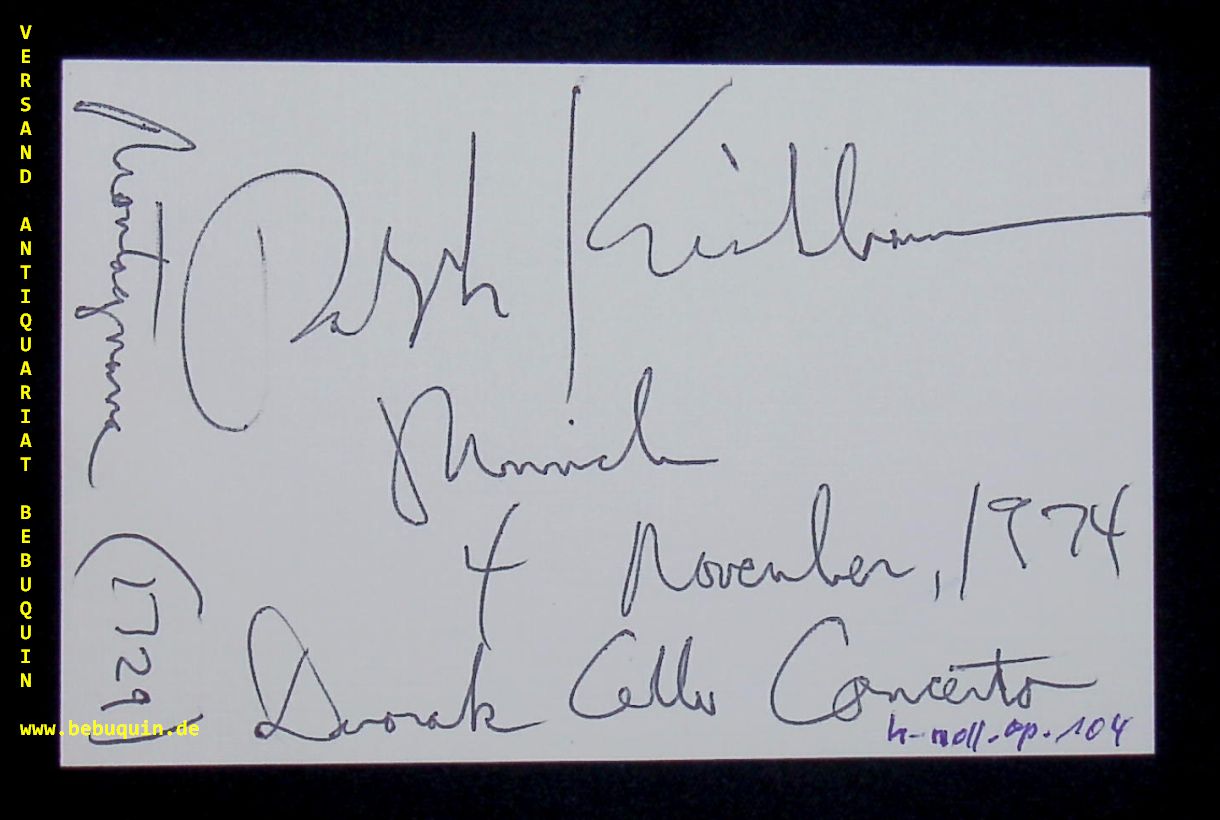 VERSAND ANTIQUARIAT BEBUQUIN
Montagnana (1729)
Ralph Kirshbaum
Munich
4 November, 1974
Dvorak Cello Concerto
h-moll. op. 104
www.bebuquin.de